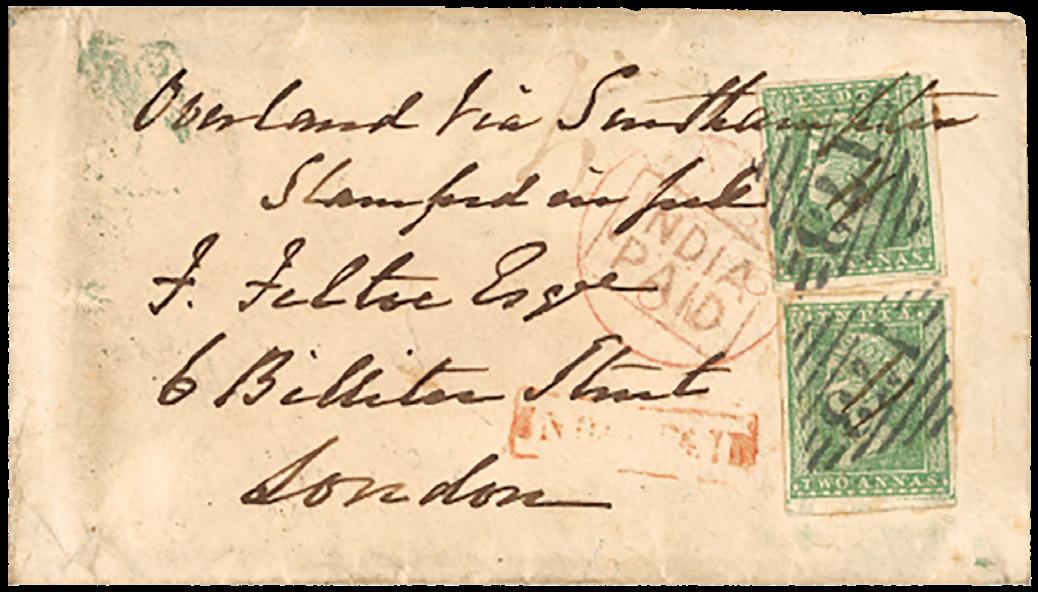 Overland Via Southampton
Stamped in full
F. Feltoe Esqre
6 Billiter Street
London
INDIA
PAID
INDIA
ANNAS
INDIA
TWO ANNAS